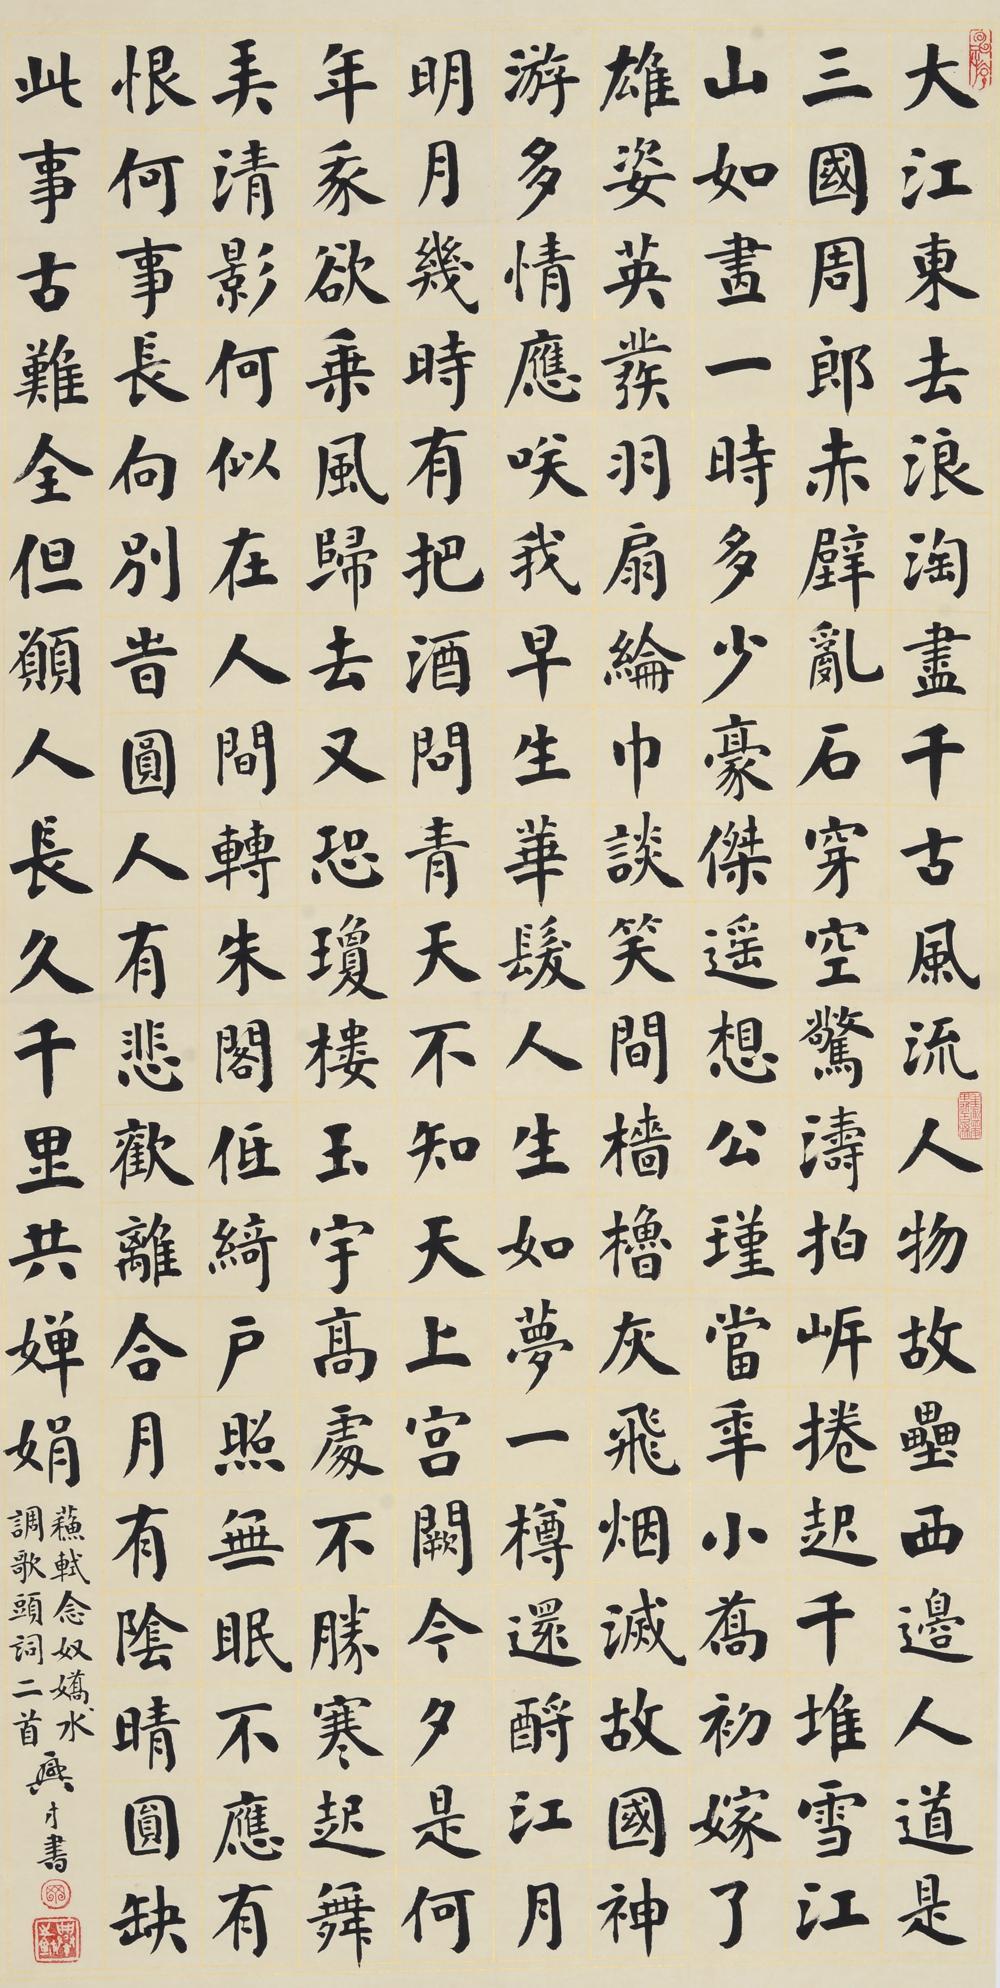 大江東去浪淘盡千古風流人物故壘西邊人道是
三國周郎赤壁亂石穿空驚濤拍岸捲起千堆雪江
山如畫一時多少豪傑遥想公瑾當年小喬初嫁了
雄姿英發羽扇綸巾談笑間檣櫓灰飛烟滅故國神
游多情應咲我早生華髮人生如夢一樽還酹江月
明月幾時有把酒問青天不知天上宫闕今夕是何
年我欲乘風歸去又恐瓊樓玉宇高處不勝寒起舞
弄清影何似在人間轉朱閣低綺户照無眠不應有
恨何事長向別時圓人有悲歡離合月有陰晴圓缺
此事古難全但願人長久千里共嬋娟
蘇軾念奴嬌水
調歌頭詞二首
興才書